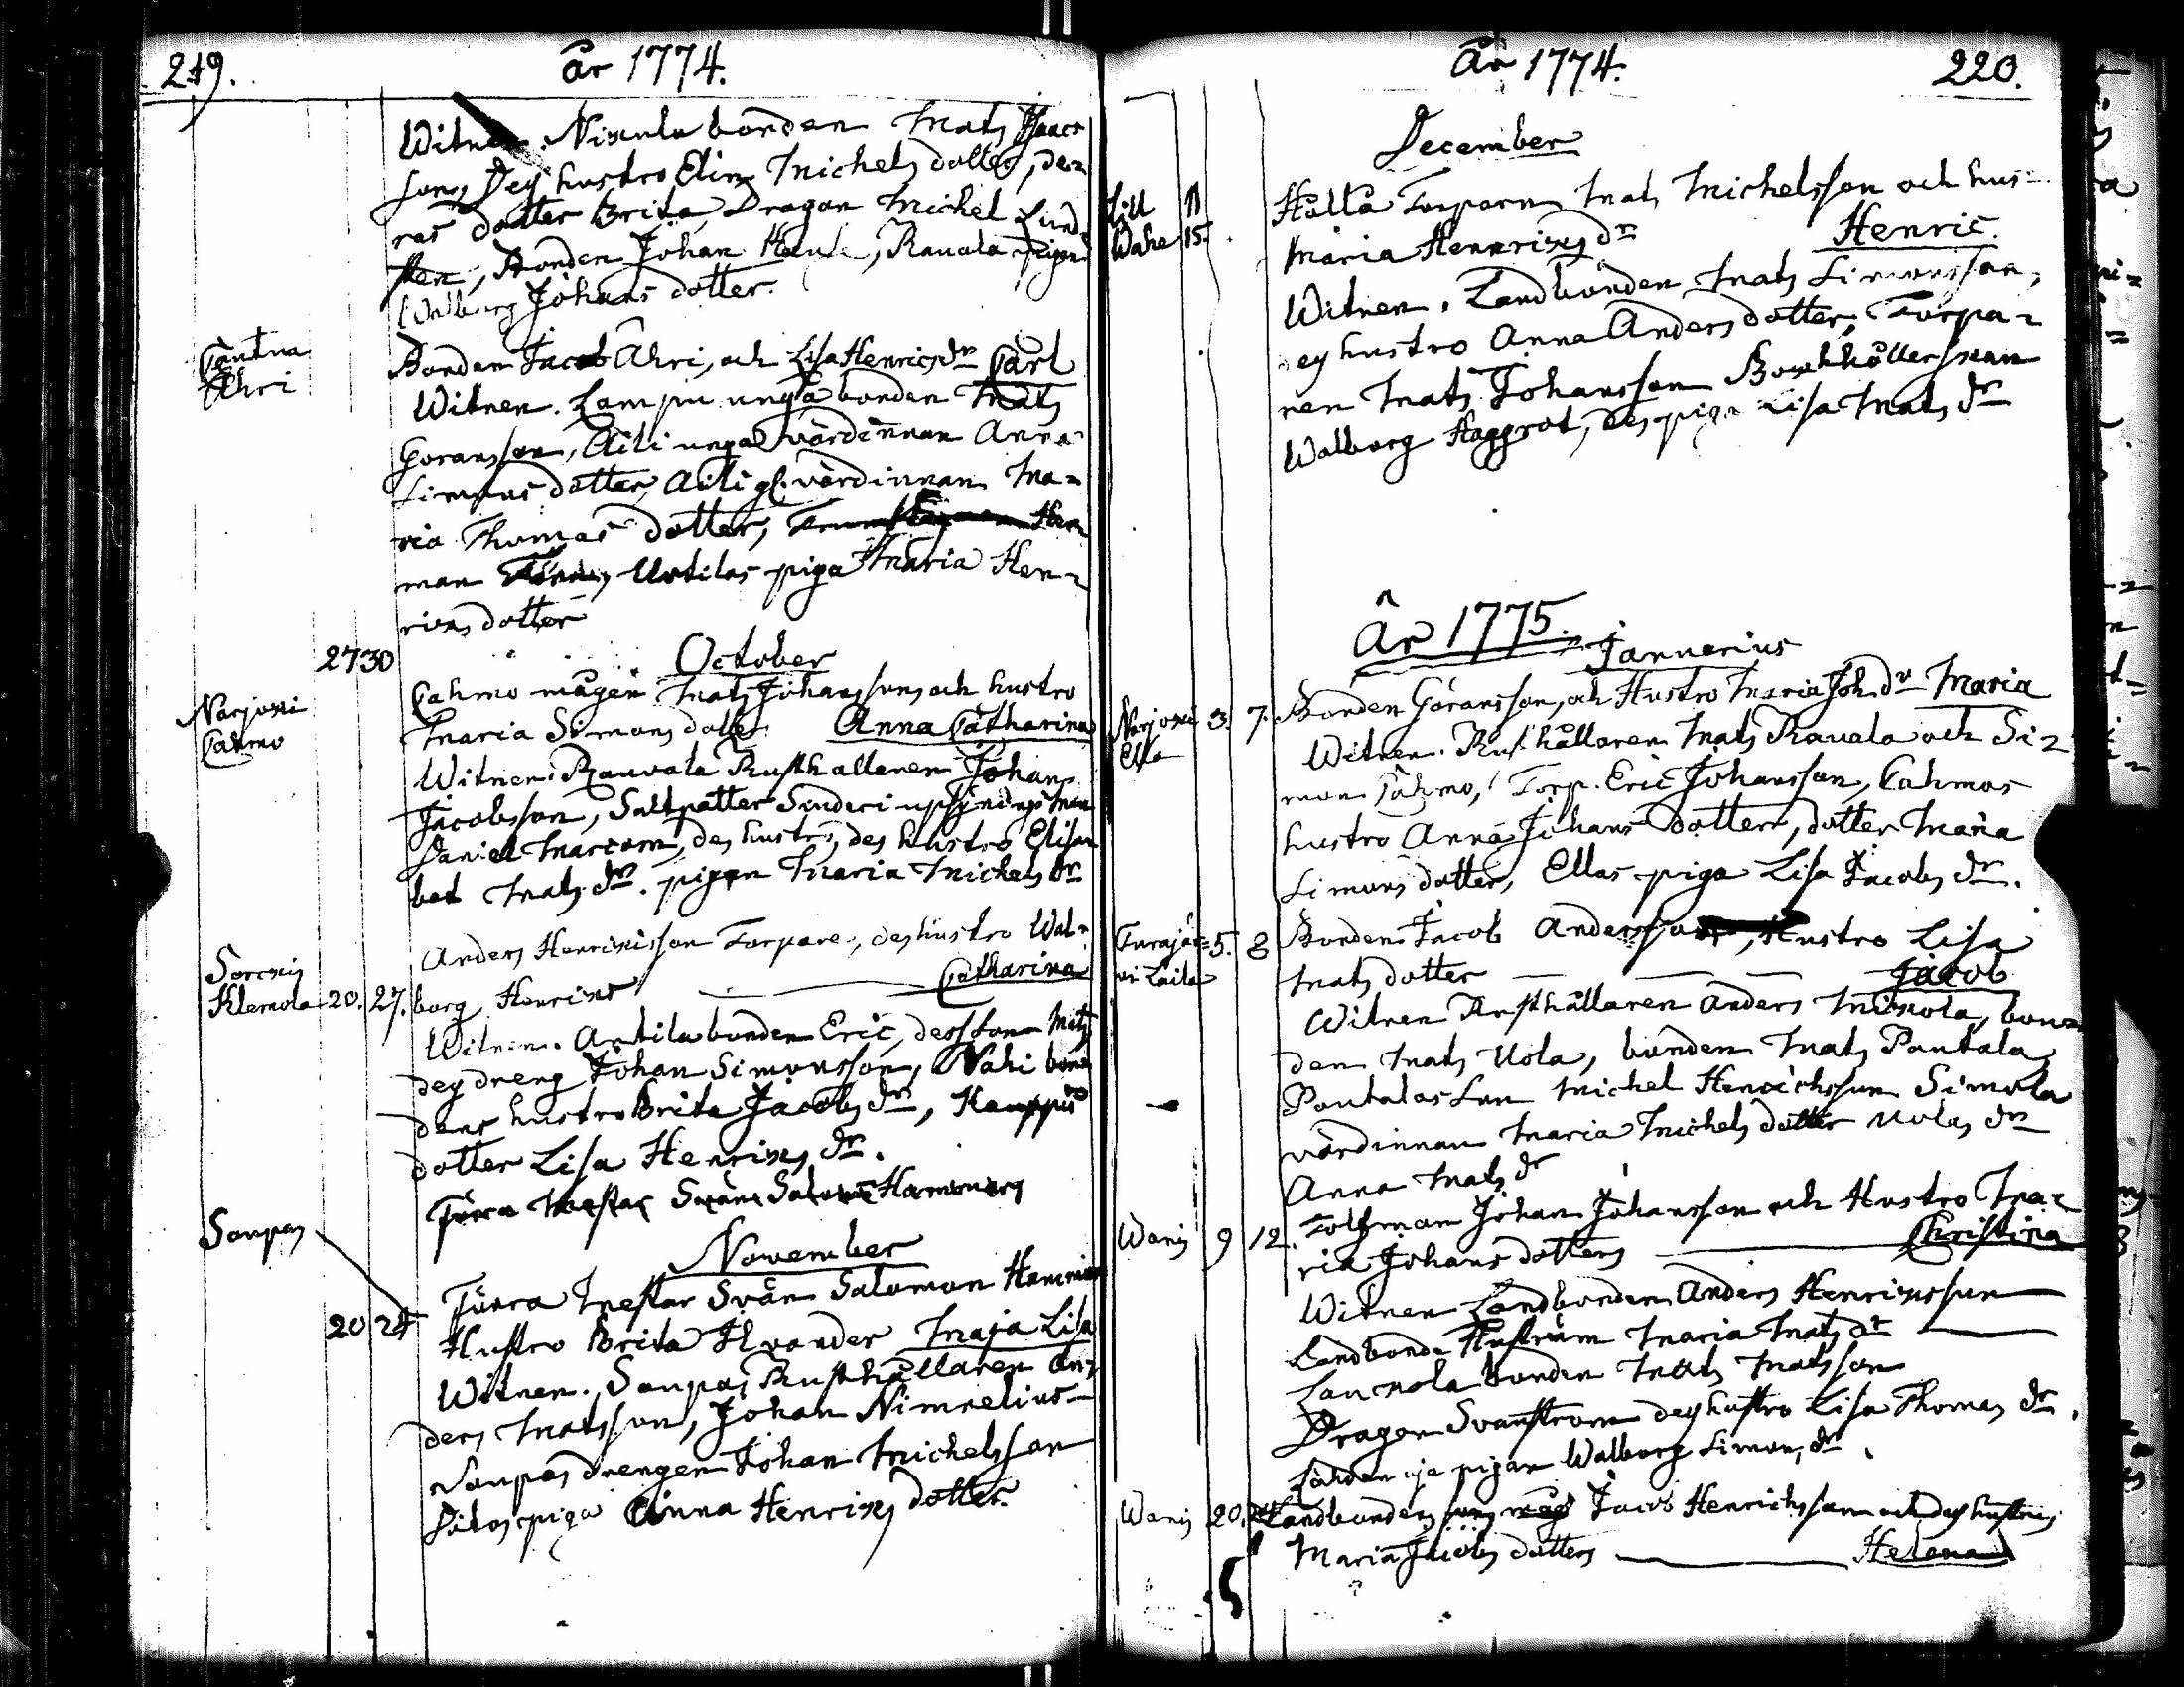 219.
År 1774.
Witnen. Nixula bonden Mats Isaacs
son, Des hustro Elin Michels dotter, de=
ras dotter Brita, Dragon Michel Lind
sten, Bonden Johan, Rauala pigan
Walborg Johans dotter.
Cantua
Ahri
Bonden Jacob Ahri, och Lisa Henrics dr Carl
Witnen. Lampu unga bonden Mats
Göransson, Aili unga värdinnan Anna
Simons dotter, Aili gl. värdinnan Ma=
ria Thomas dotter,
man Uotilas piga Maria Hen=
rics dotter
October
27 30
Narjoxi
Cahmo
Cahmo mågen Mats Johansson, och hustro
Maria Simons dotter Anna Catharina
Witnen. Rauvala Rusthallaren Johan
Jacobsson, Saltpetter Siuderi upsynings man
Daniel, des hustro, des hustro Elisa
bet Mats dr. pigan Maria Michels dr
Klemola 20. 27.
Anders Henricsson Torpare, des hustro Wal=
borg Henrics Catharina
Witnen. Antila bonden Eric, dess son Mats
des dreng Johan Simonsson, Nahi bon
dens hustro Brita Jacobs dr, Kauppis
dotter Lisa Henrics dr.
Förra Mestar Svän Salomon Hammarn
November
Sonpas
20 24
Förra Mestar Svän Salomon Hammarn
Hustro Brita Maja Lisa
Witnen. Sonpas Rusthållaren An=
ders Matsson, Johan Nimnelius
Sonpas drengen Johan Michelsson
piga Anna Henrics dotter.
År 1774.
220.
December
Lill
Wahe 11 15.
Hålla Torparn Mats Michelsson och hus=
Maria Henrics dr Henric.
Witnen. Landbonden Mats Simonsson,
des hustro Anna Anders dotter, Torpa=
ren Mats Johansson Bookhållerskan
Walborg Haggrot, des piga Lisa Mats dr
År 1775.
Januarius
Narjoxi
Ella 3. 7.
Bonden Göransson, och Hustro Maria Joh. dr Maria
Witnen. Rusthållaren Mats Rauala och Si=
mon Cahmo, Torp. Eric Johansson, Cahmos
hustro Anna Johans dotter, dotter Maria
Simons dotter, Ellas piga Lisa Jacobs dr.
Turajär=
vi Laila 5. 8
Bonden Jacob Andersson, Hustro Lisa
Mats dotter Jacob
Witnen Rusthållaren Anders Mickola, bon=
den Mats Uola, bonden Mats Pantala
Pantalas Son Michel Henrichsson Simola
värdinnan Maria Michels dotter Uolas dr
Anna Mats dr
Wanis 9 12.
Tolfman Johan Johansson och Hustro Ma=
ria Johans dotters Christina
Witnen Landbonden Anders Henricsson
Landbonde Hustrun Maria Mats dr
Launola bonden Mats Matsson
Dragon Svanstrom des hustro Lisa Thomas dr.
pigan Walborg Simons dr.
Wanis 20.
Landbondens Jacob Henrichsson och des hustrus
Maria Jacobs dotters Helena